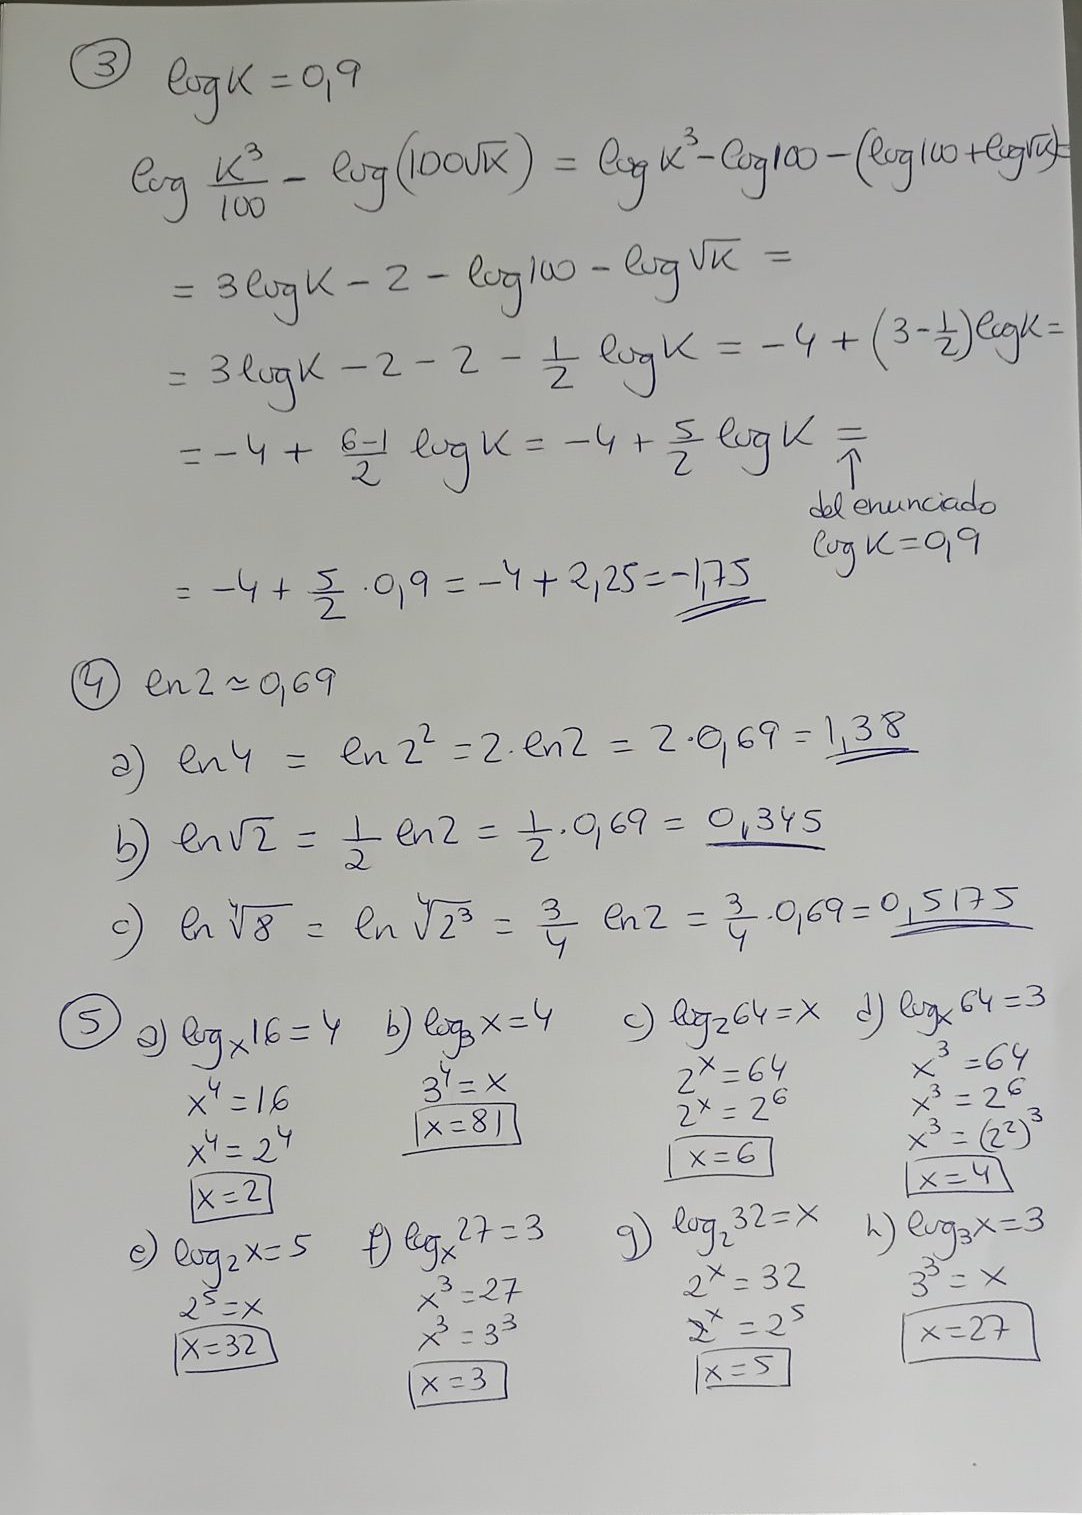 ③ log K = 0,9
log K³/100 - log(100√K) = log K³ - log100 - (log100 + log√K) =
= 3 log K - 2 - log100 - log √K =
= 3 log K - 2 - 2 - 1/2 log K = -4 + (3 - 1/2) log K =
= -4 + (6-1)/2 log K = -4 + 5/2 log K =
↑
del enunciado
log K = 0,9
= -4 + 5/2 · 0,9 = -4 + 2,25 = -1,75
④ ln 2 ≃ 0,69
a) ln 4 = ln 2² = 2 · ln 2 = 2 · 0,69 = 1,38
b) ln √2 = 1/2 ln 2 = 1/2 · 0,69 = 0,345
c) ln ⁴√8 = ln ⁴√2³ = 3/4 ln 2 = 3/4 · 0,69 = 0,5175
⑤ a) logₓ16 = 4
x⁴ = 16
x⁴ = 2⁴
x = 2
b) log₃x = 4
3⁴ = x
x = 81
c) log₂64 = x
2ˣ = 64
2ˣ = 2⁶
x = 6
d) logₓ64 = 3
x³ = 64
x³ = 2⁶
x³ = (2²)³
x = 4
e) log₂x = 5
2⁵ = x
x = 32
f) logₓ27 = 3
x³ = 27
x³ = 3³
x = 3
g) log₂32 = x
2ˣ = 32
2ˣ = 2⁵
x = 5
h) log₃x = 3
3³ = x
x = 27